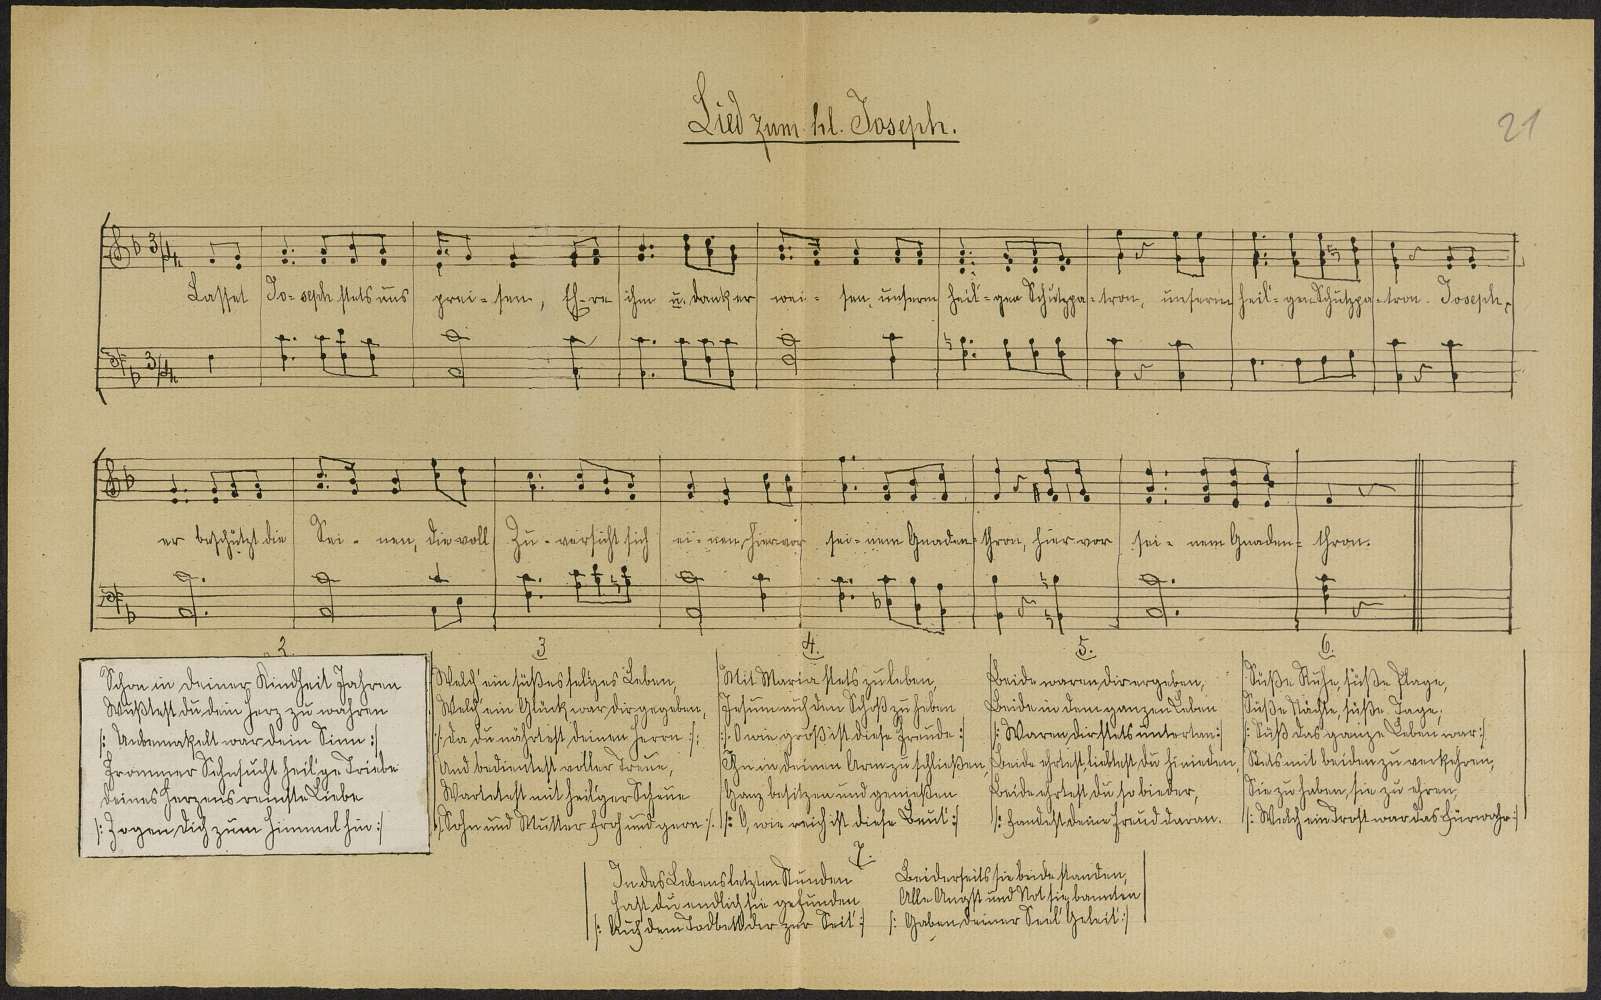 Lied zum hl. Joseph.
21
Lasset Jo-seph stets uns prei-sen, Eh-re ihm u. dank er wei-sen, unserm heil'-gen Schutzpa-tron, unserm heil'-gen Schutzpa-tron. Joseph,
er beschützt die Sei-nen, die voll Zu-versicht sich ei-nen, hier vor sei-nem Gnaden-thron, hier vor sei-nem Gnaden-thron.
2.
Schon in deiner Kindheit Jahren
Wußtest du dein Herz zu wahren
/: Unbemakelt war dein Sinn :/
Frommer Sehnsucht heil'ge Triebe
deines Herzens reinste Liebe
/: Zogen dich zum Himmel hin :/
3
Welch' ein süßes seliges Leben,
Welch' ein Glück war dir gegeben,
/: da du nährtest deinen Herrn :/:
Und bedientest voller Treue,
Wartetest mit heil'ger Scheue
/: Sohn und Mutter froh und gern :/.
4.
Mit Maria stets zu leben
Jesum auf den Schoß zu heben
/: O wie groß ist diese Freude :/
Ihn in deinen Arm zu schließen,
Ganz besitzen und genießen
/: O, wie reich ist diese Beut' :/
5.
Beide waren dir ergeben,
Beide in dem ganzen Leben
/: Waren dir stets untertan :/
Beide ehrtest, liebtest du hinieden,
Beide ehrtest du so bieder,
/: Fandest deine Freud daran.
6.
Süße Ruhe, süße Plage,
Süße Nächte, süße Tage,
/: Süß das ganze Leben war :/
Stets mit beiden zu verkehren,
Sie zu haben, sie zu ehren,
/: Welch ein Trost war das fürwahr :/
7.
In des Lebens letzten Stunden
Hast du endlich sie gefunden
/: Auf dem Todbett dir zur Seit' :/
Beiderseits sie beide standen,
Alle Angst und Not sie bannten
/: Gaben deiner Seel' Geleit' :/